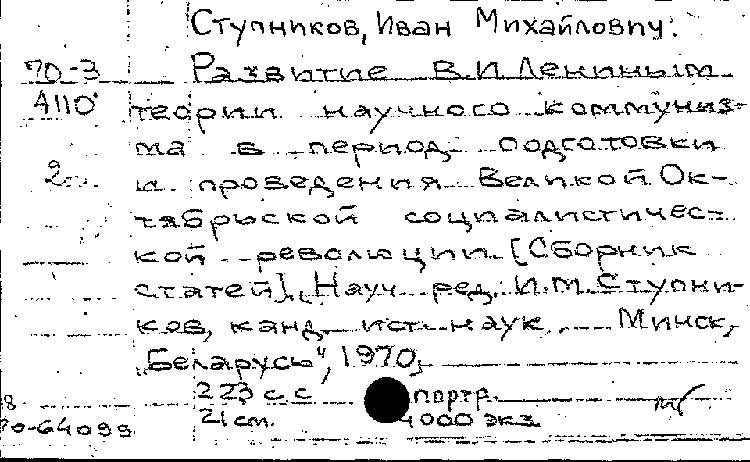 Ступников, Иван Михайлович.
70-3 Развитие В.И.Лениным
А110 теории научного коммуниз-
ма в период подготовки
и проведения Великой Ок-
тябрьской социалистичес-
кой революции. [Сборник
статей]. Науч. ред. И.М.Ступни-
ков, канд. ист. наук. Минск,
„Беларусь", 1970,
223 с. с портр.
21 см. 4000 экз.
70-64099